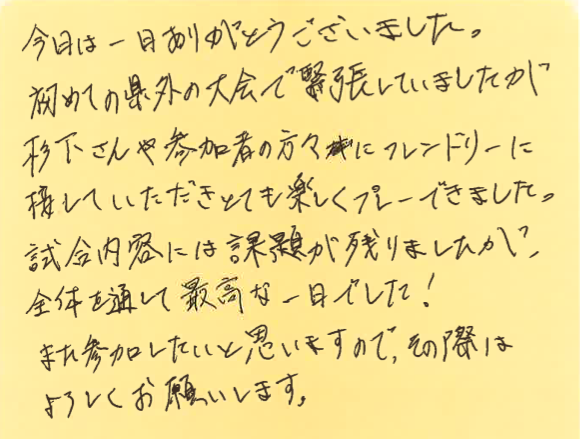 今日は一日ありがとうございました。
初めての県外の大会で緊張していましたが
杉下さんや参加者の方々にフレンドリーに
接していただきとても楽しくプレーできました。
試合内容には課題が残りましたが、
全体を通して最高な一日でした!
また参加したいと思いますので、その際は
よろしくお願いします。